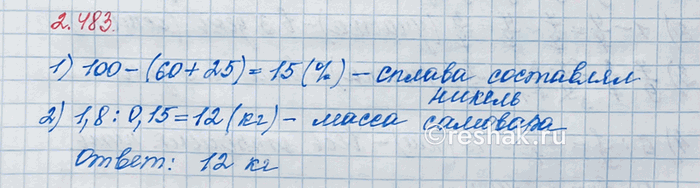 2.483.
1) 100 - (60 + 25) = 15 (%) - сплава составлял
никель
2) 1,8 : 0,15 = 12 (кг) - масса самовара
Ответ: 12 кг
reshak.ru